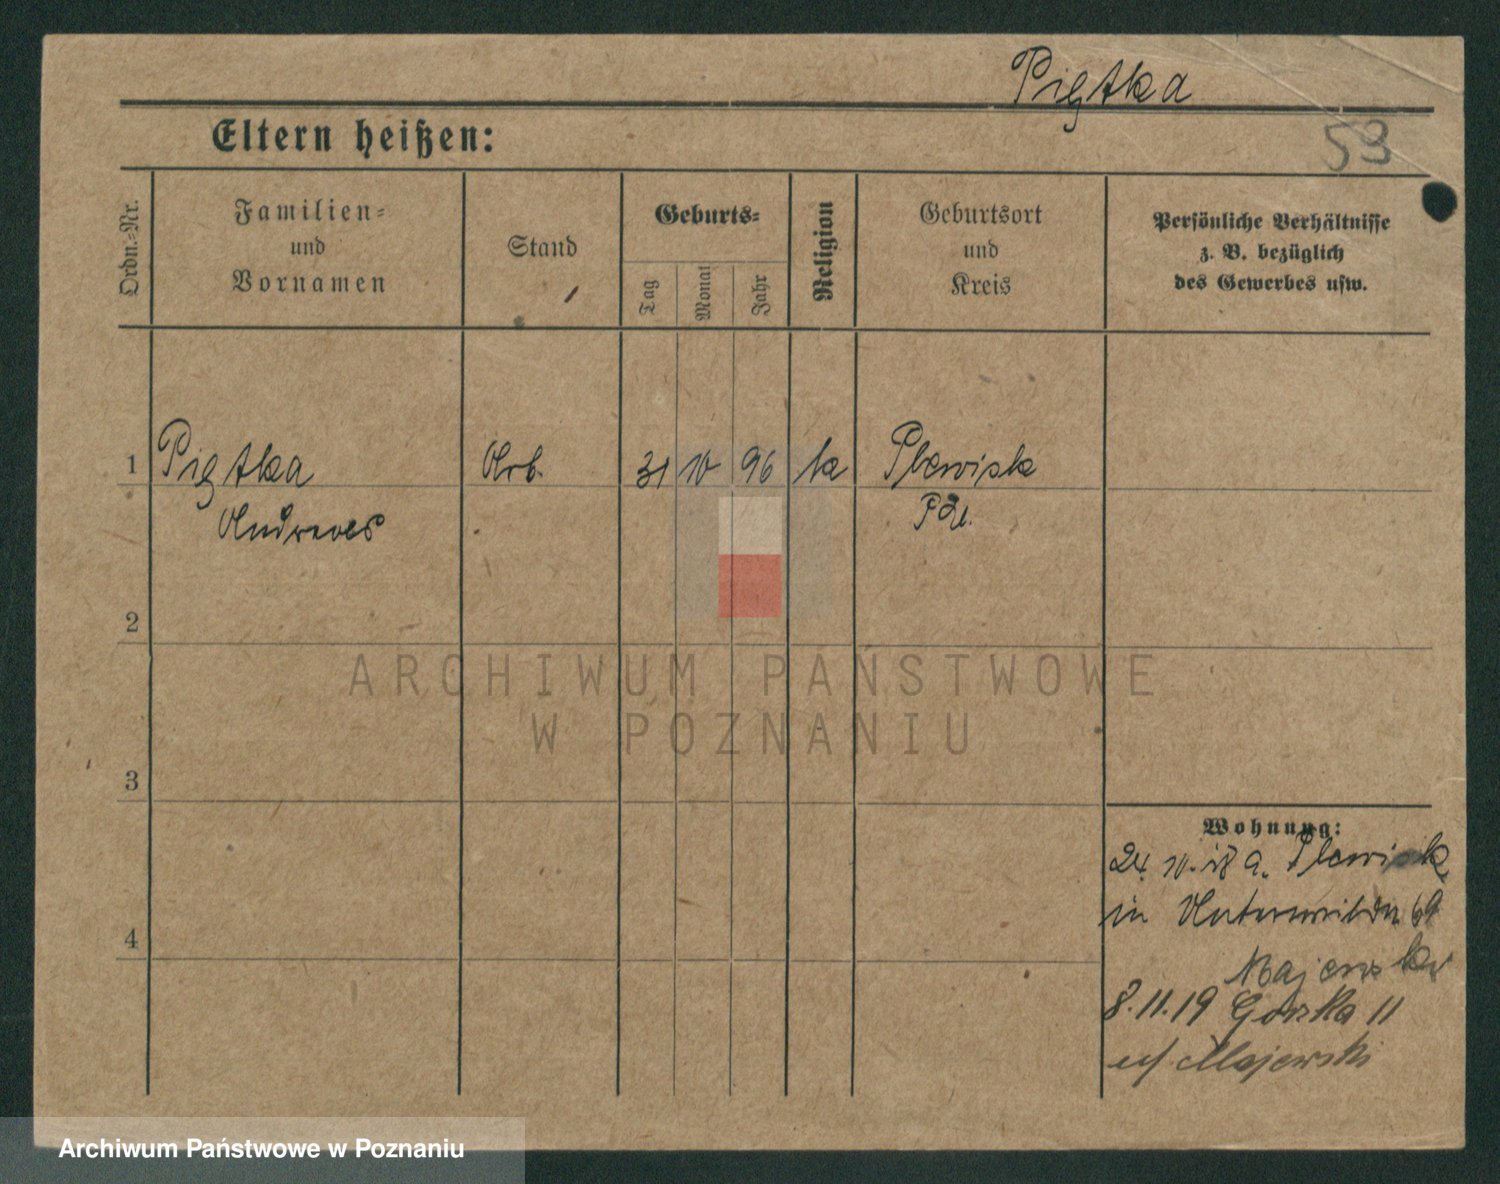 Piątka
Eltern heißen:
53
Ordn.-Nr.
Familien-
und
Vornamen
Stand
Geburts-
Tag
Monat
Jahr
Religion
Geburtsort
und
Kreis
Persönliche Verhältnisse
z. B. bezüglich
des Gewerbes usw.
1 Piątka Arb. 31 10 96 k Plewisk
Andreas P. W.
2
ARCHIWUM PAŃSTWOWE
W POZNANIU
3
Wohnung:
24. 10. 18 a. Plewisk
in Unterwilda 69
4
Majewski
8.11.19 Gorska 11
Majewski
Archiwum Państwowe w Poznaniu